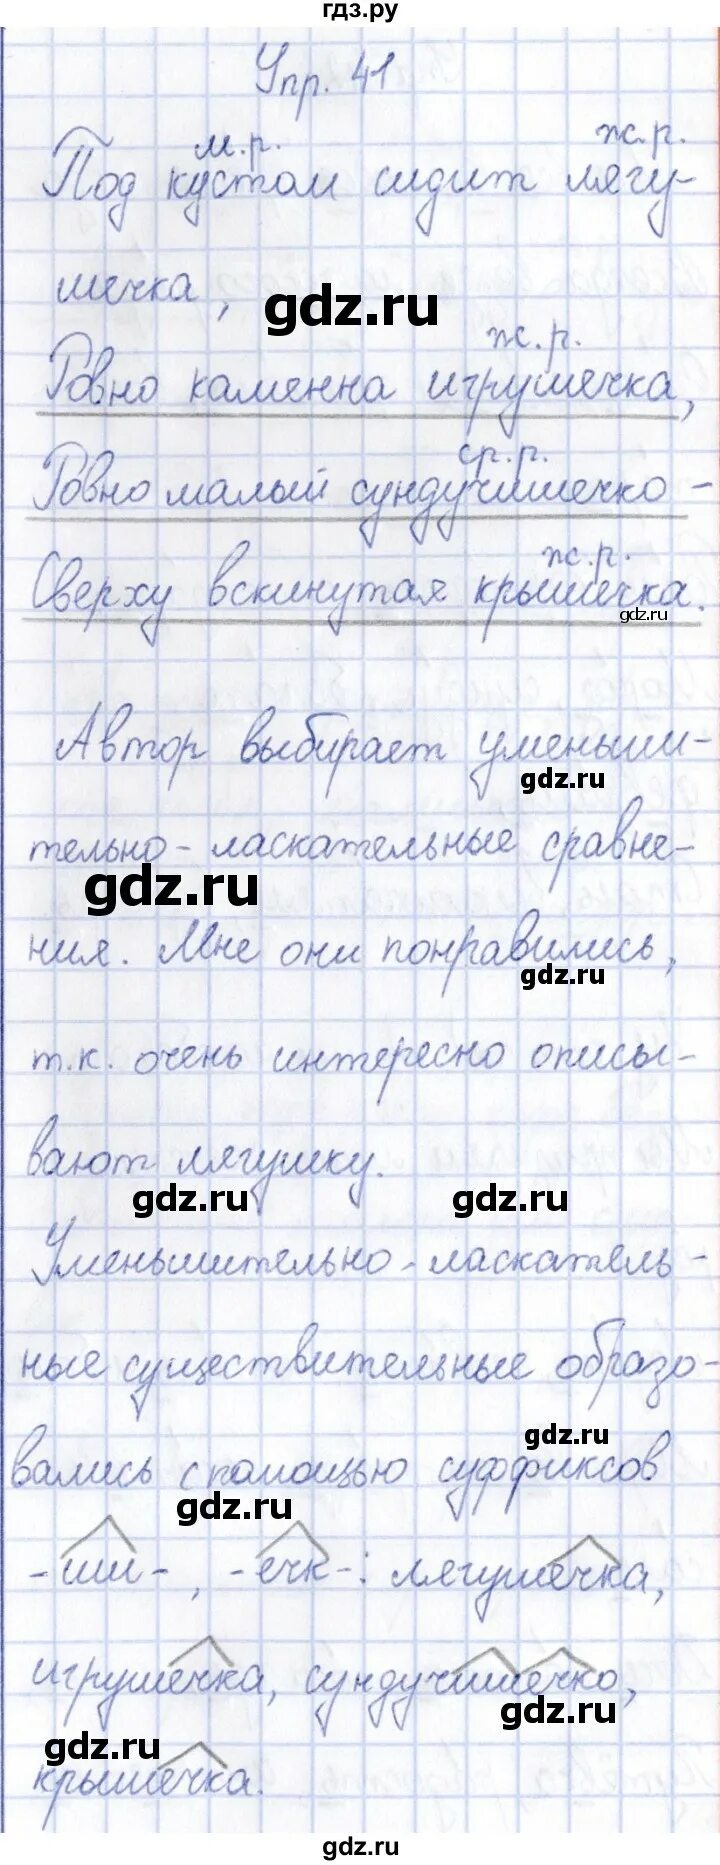 гдз.ру
Упр. 41
м.р. ж.р.
Под кустом сидит лягу-
шечка,
gdz.ru
ж.р.
Ровно каменна игрушечка,
ср.р.
Ровно малый сундучишечко -
ж.р.
Сверху вскинутая крышечка.
gdz.ru
Автор выбирает уменьши-
gdz.ru
тельно-ласкательные сравне-
gdz.ru
ния. Мне они понравились,
gdz.ru
т.к. очень интересно описы-
вают лягушку.
gdz.ru gdz.ru
Уменьшительно-ласкатель-
ные существительные образо-
gdz.ru
вались с помощью суффиксов
gdz.ru
-иш-, -ечк-: лягушечка,
игрушечка, сундучишечко,
gdz.ru
gdz.ru
крышечка.
gdz.ru